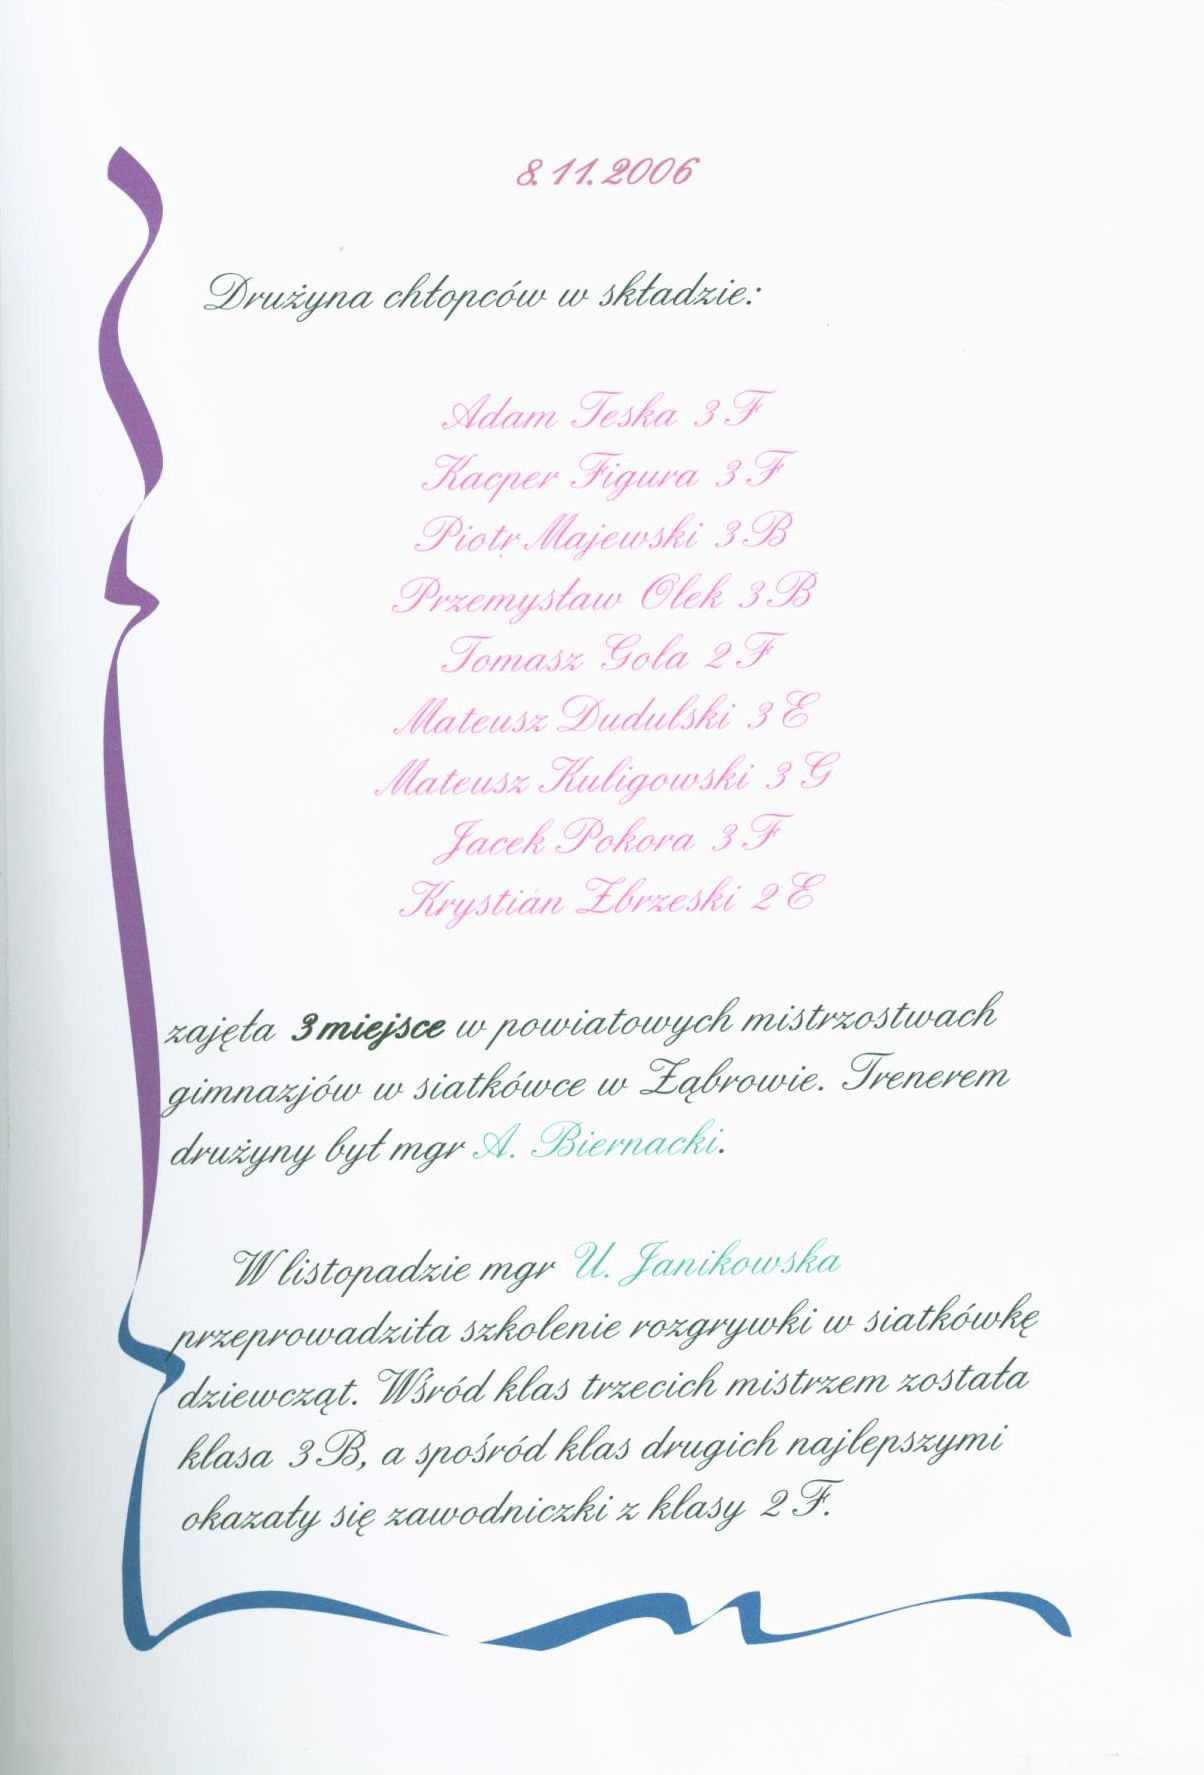 8.11.2006
Drużyna chłopców w składzie:
Adam Teska 3 F
Kacper Figura 3 F
Piotr Majewski 3 B
Przemysław Olek 3 B
Tomasz Gola 2 F
Mateusz Dudulski 3 E
Mateusz Kuligowski 3 G
Jacek Pokora 3 F
Krystian Zbrzeski 2 E
zajęła 3 miejsce w powiatowych mistrzostwach
gimnazjów w siatkówce w Ząbrowie. Trenerem
drużyny był mgr A. Biernacki.
W listopadzie mgr U. Janikowska
przeprowadziła szkolenie rozgrywki w siatkówkę
dziewcząt. Wśród klas trzecich mistrzem została
klasa 3 B, a spośród klas drugich najlepszymi
okazały się zawodniczki z klasy 2 F.